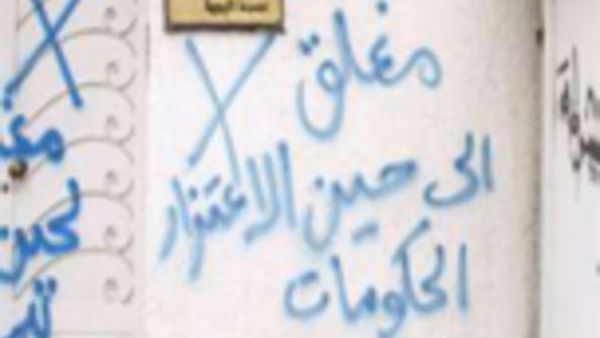 مغلق
الى حين الاعتزار
الحكومات
لحين